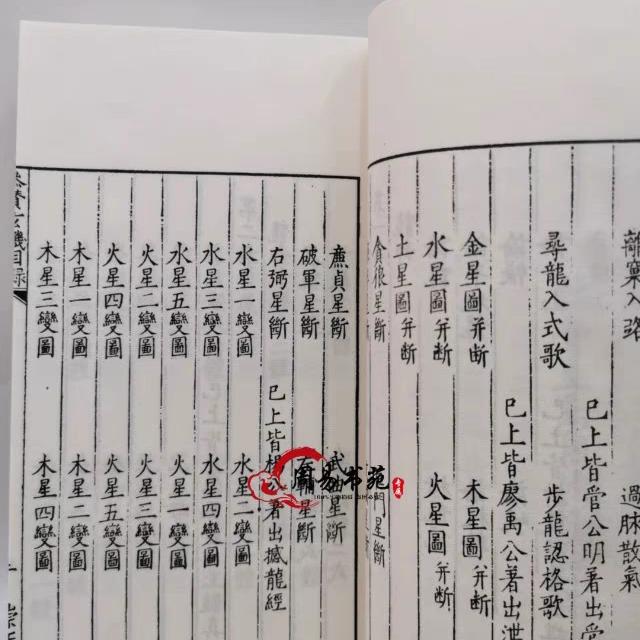 離窠入路 過脉散氣
巳上皆管公明著出
尋龍入式歌 步龍認格歌
巳上皆廖禹公著出泄
金星圖并断 木星圖并断
水星圖并断 火星圖并断
土星圖并断
貪狼星断 門星断
廉貞星断 星断
破軍星断 星断
右弼星断 巳上皆楊公著出撼龍經
水星一變圖 水星二變圖
水星三變圖 水星四變圖
水星五變圖 火星一變圖
火星二變圖 火星三變圖
火星四變圖 火星五變圖
木星一變圖 木星二變圖
木星三變圖 木星四變圖
目録
易书苑